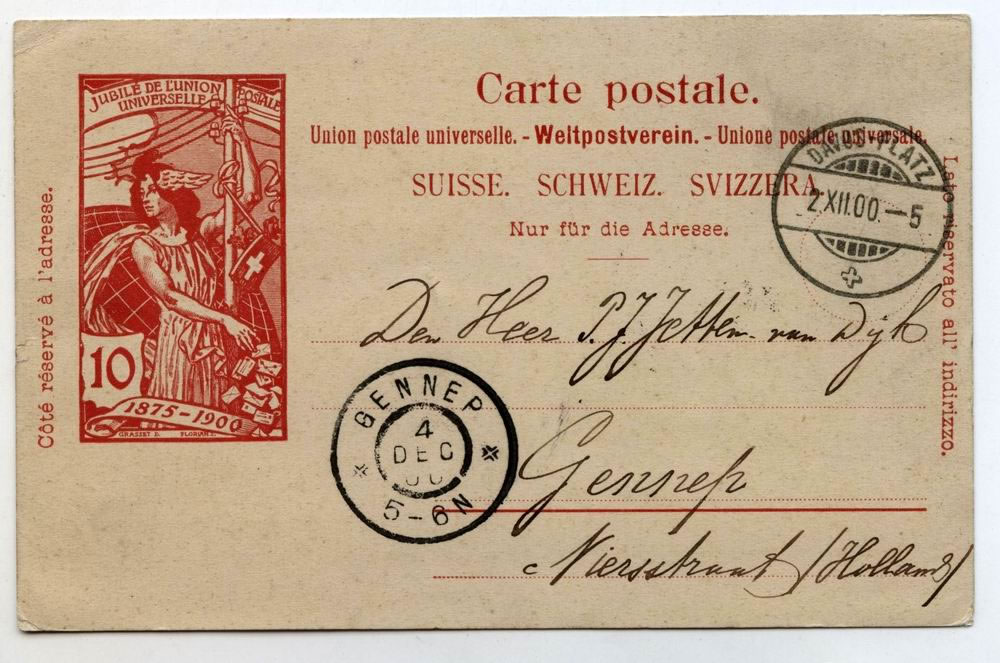 JUBILÉ DE L'UNION
UNIVERSELLE POSTALE
10
1875-1900
GRASSET D. FLORIAN S.
Côté réservé à l'adresse.
Carte postale.
Union postale universelle. - Weltpostverein. - Unione postale universale.
SUISSE. SCHWEIZ. SVIZZERA.
Nur für die Adresse.
Lato riservato all' indirizzo.
DAVOS-PLATZ
2.XII.00.-5
Den Heer P. J. Jetten-van Dijk
GENNEP
4
DEC
00
5-6N
Gennep
Niersstraat (Holland)